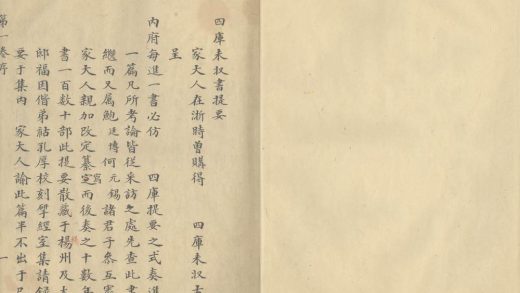 四庫未收書提要
家大人在浙時曾購得 四庫未收古
呈
內府每進一書必仿 四庫提要之式奏進
一篇凡所考論皆從采訪之處先查此書
繼而又屬鮑廷博何元錫諸君子參互審
家大人親加改定纂寫而後奏之十數年
書一百數十部此提要散藏于揚州及大
邱福因偕弟祜孔厚校刻揅經室集請錄
要于集內 家大人諭此篇半不出于乃
第一卷序 一